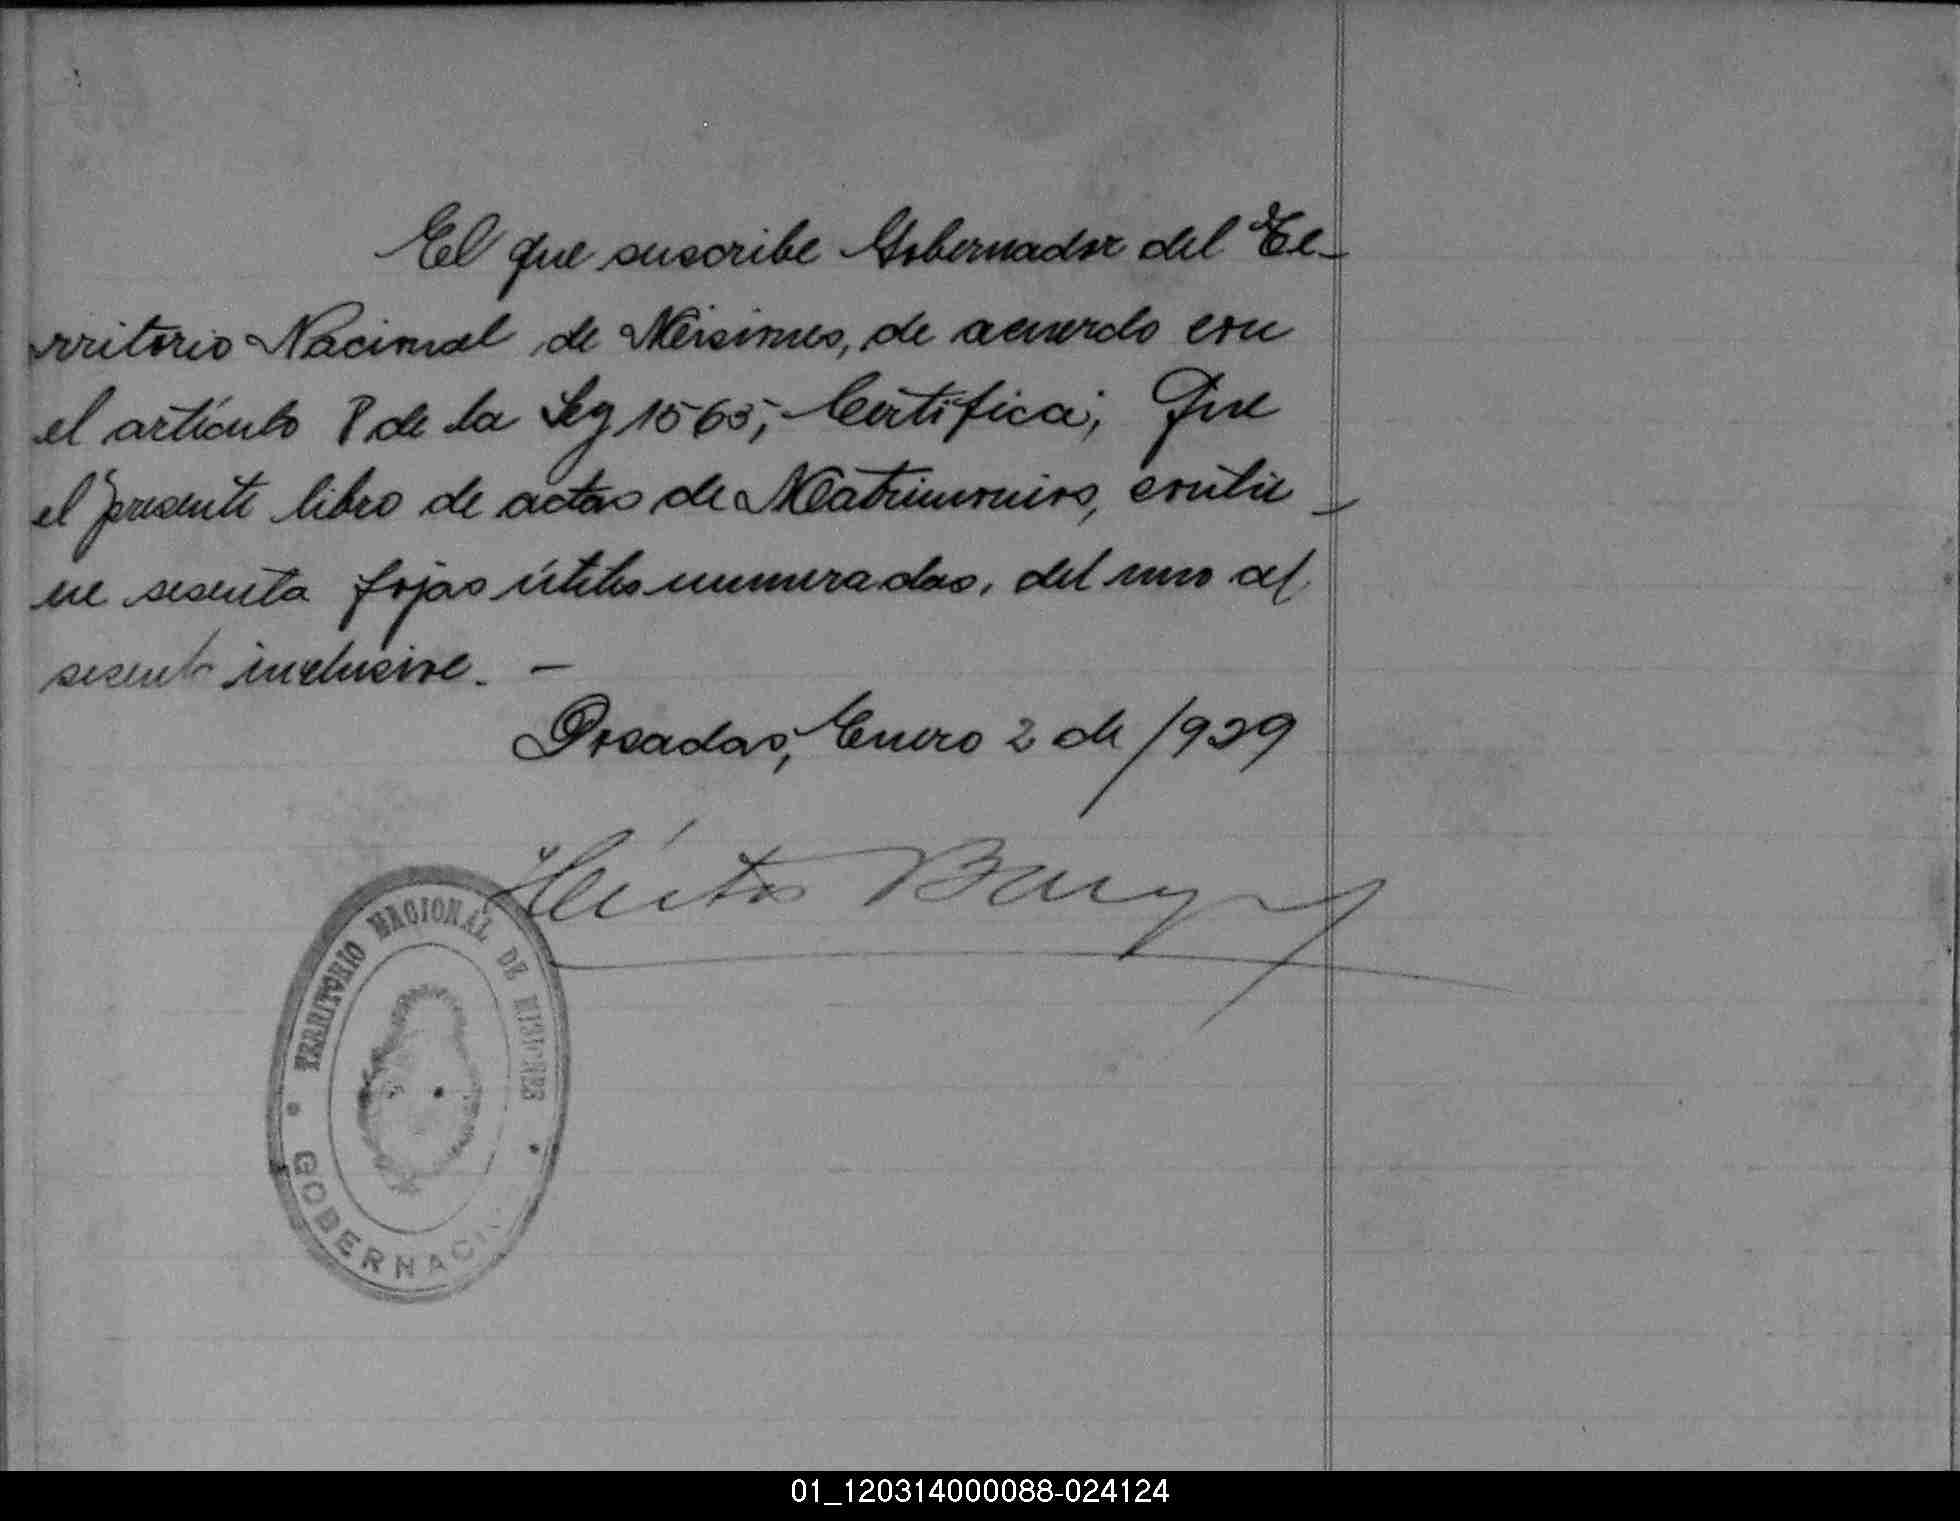 El que suscribe Gobernador del Te-
rritorio Nacional de Misiones, de acuerdo con
el artículo 8 de la Ley 1565, Certifica; Que
el presente libro de actas de Matrimonios, contie-
ne sesenta fojas útiles numeradas, del uno al
sesenta inclusive. —
Posadas, Enero 2 de 1929
Héctor Barreyro
TERRITORIO NACIONAL DE MISIONES
GOBERNACION
01_120314000088-024124